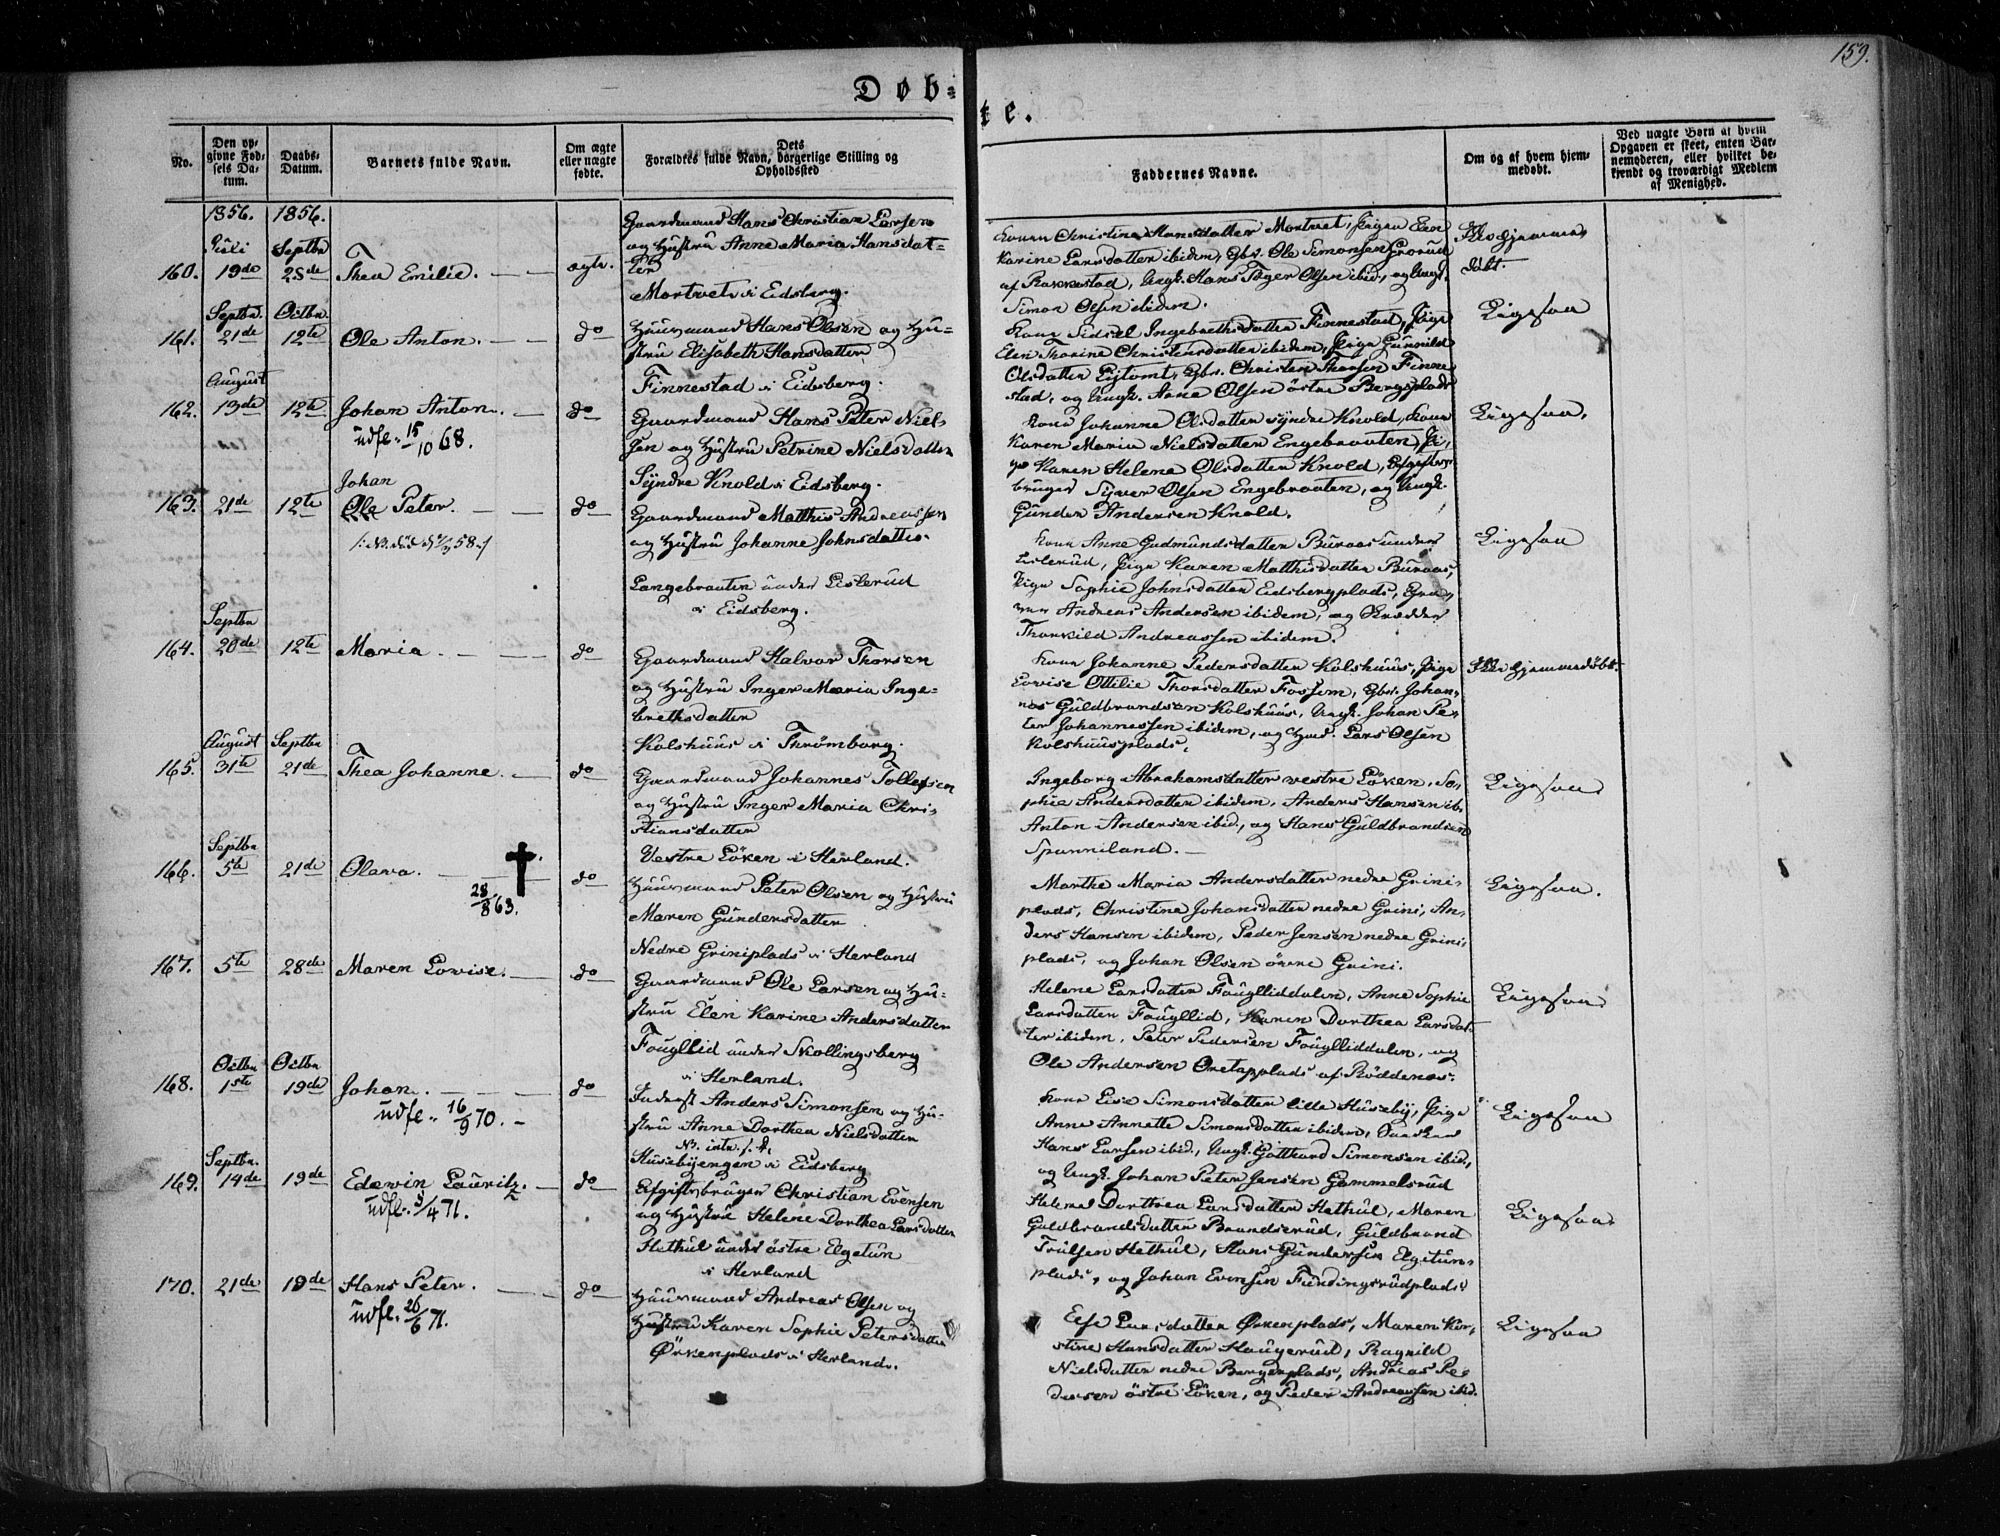 159.
Døb=
te.
No.
Den op-
givne Fød-
sels Da-
tum.
Daabs-
Datum.
Barnets fulde Navn.
Om ægte
eller uægte
fødte.
Dets
Forældres fulde Navn, borgerlige Stilling og
Opholdssted
Faddernes Navne.
Om og af hvem hjem-
medøbt.
Ved uægte Børn af hvem
Opgaven er skeet, enten Bar-
nemoderen, eller hvilket be-
kjendt og troværdigt Medlem
af Menighed.
1856. 1856.
Juli Septbr
160. 19de 28de Thea Emilie. ægte.
Gaardmand Hans Christian Larsen
og Hustru Anne Maria Hansdat=
ter
Mortvet i Eidsberg.
Kone Christine Hansdatter Mortvet, Pige Elen
Karine Larsdatter ibidem, Gbr. Ole Simonsen Grorud
af Rakkestad, Ungk. Hans Olsen ibid., og Ungk.
Simon Olsen ibidem.
Hjemme
døbt.
Septbr. Octbr.
161. 21de 12te Ole Anton. do
Huusmand Hans Olsen og Hu=
stru Elisabeth Hansdatter
Finnestad i Eidsberg.
Kone Sidsel Ingebrethsdatter Finnestad, Pige
Elen Thorine Christensdatter ibidem, Pige Gunnild
Olsdatter Lystomt, Gbr. Christen Thorsen Finne
stad, og Ungk. Olsen østre Bergsplads
Ligesaa
August
162. 13de 12te Johan Anton. do
udfl. 15/10 68.
Gaardmand Hans Peter Niel=
sen og Hustru Petrine Nielsdatter
Syndre Knold i Eidsberg.
Kone Johanne Olsdatter syndre Knold, Kone
Karen Maria Nielsdatter Engebraaten, Pi,
ge Karen Helene Olsdatter Knold, Afgifts-
bruger Syver Olsen Engebraaten, og Ungk.
Gunder Andersen Knold.
Ligesaa.
Johan
163. 21de 12te Ole Peter. do
/: NB. død 58. :/
Gaardmand Matthis Andreassen
og Hustru Johanne Johnsdatter.
Langebraaten under Lislerud
i Eidsberg.
Kone Anne Gudmundsdatter Buraas under
Lislerud, Pige Karen Matthisdatter Buraas,
Pige Sophie Johnsdatter Eidsbergplads,
Andreas Andersen ibidem, og Skrædder
Thorkild Andreassen ibidem.
Ligesaa
Septbr
164. 20de 12te Maria. do
Gaardmand Halvor Thorsen
og Hustru Inger Maria Inge=
brethsdatter
Kolshuus i Thrømborg.
Kone Johanne Pedersdatter Kolshuus, Pige
Lovise Ottilie Thorsdatter Fossem, Gbr. Johan,
nes Guldbrandsen Kolshuus, Ungk. Johan Pe,
ter Johannessen ibidem, og Lars Olsen
Kolshuusplads.
hjemmedøbt.
August Septbr
165. 31te 21de Thea Johanne. do
Gaardmand Johannes Tollefsen
og Hustru Inger Maria Chri=
stiansdatter
Vestre Löken i Herland.
Ingeborg Abrahamsdatter vestre Löken, So,
phie Andersdatter ibidem, Anders Hansen ib.
Anton Andersen ibid., og Hans Guldbrandsen
Spanniland.
Ligesaa
Septbr
166. 5te 21de Olava. † do
28/8 63.
Huusmand Peter Olsen og Hustru
Maren Gundersdatter
Nedre Griniplads i Herland
Marthe Maria Andersdatter nedre Grini,
plads, Christine Johansdatter nedre Grini, An,
ders Hansen ibidem, Peder Jensen nedre Grini,
plads, og Johan Olsen øvre Grini.
Ligesaa.
167. 5te 28de Maren Lovise. do
Gaardmand Ole Larsen og Hu=
stru Elen Karine Andersdatter
Fougllid under Skollingsberg
i Herland.
Helene Larsdatter Fouglliddalen, Anne Sophie
Larsdatter Fougllid, Karen Dorthea Larsdat-
ter ibidem, Peter Pedersen Fouglliddalen, og
Ole Andersen Oretapplads af Röddenes.
Ligesaa
Octbr Octbr
168. 1ste 19de Johan. do
udfl. 16/9 70.
Inderst Anders Simonsen og Hu=
stru Anne Dorthea Nielsdatter
Husebyengen i Eidsberg
Kone Lise Simonsdatter lille Huseby, Pige
Anne Annette Simonsdatter ibidem,
Hans Larsen ibid., Ungk. Gotthard Simonsen ibid.,
og Ungk. Johan Peter Jensen Gammelsrud
Ligesaa
Septbr.
169. 14de 19de Edewin Lauritz. do
udfl. 3/4 71.
Afgiftsbruger Christian Evensen
og Hustru Helene Dorthea Larsdatter
Hethul under østre Elgetun
i Herland
Helene Dorthea Larsdatter Hethul, Maren
Guldbrandsdatter Brandsrud, Guldbrand
Trulsen Hethul, Hans Gundersen Elgetun,
plads, og Johan Evensen Fundingsrudplads
Ligesaa
170. 21de 19de Hans Peter. do
udfl. 26/6 71.
Huusmand Andreas Olsen og
Hustru Karen Sophie Petersdatter
Ørkenplads i Herland.
Larsdatter Ørkenplads, Maren Kir,
stine Hansdatter Haugerud, Ragnild
Nielsdatter nedre Bergerplads, Andreas Pe,
dersen østre Löken, og Peder Andreassen ibid.
Ligesaa